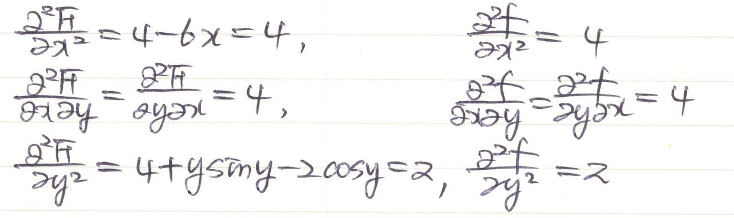 ∂²F/∂x² = 4-6x = 4, ∂²f/∂x² = 4
∂²F/∂x∂y = ∂²F/∂y∂x = 4, ∂²f/∂x∂y = ∂²f/∂y∂x = 4
∂²F/∂y² = 4+ysiny-2cosy=2, ∂²f/∂y² = 2